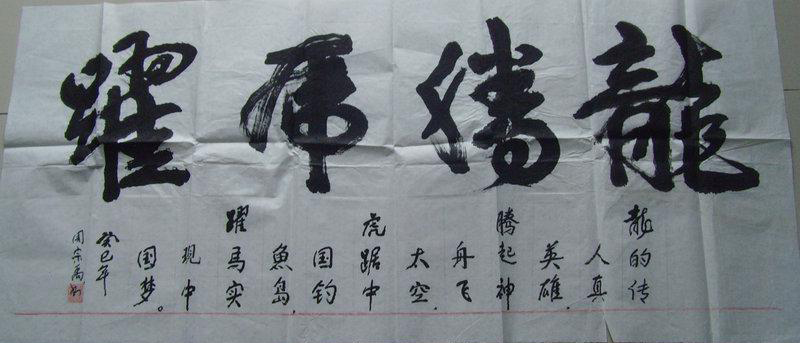 龍腾虎躍
龍的传
人真
英雄,
腾起神
舟飞
太空,
虎踞中
国钓
魚島,
躍馬实
现中
国梦。
癸巳年
周宗